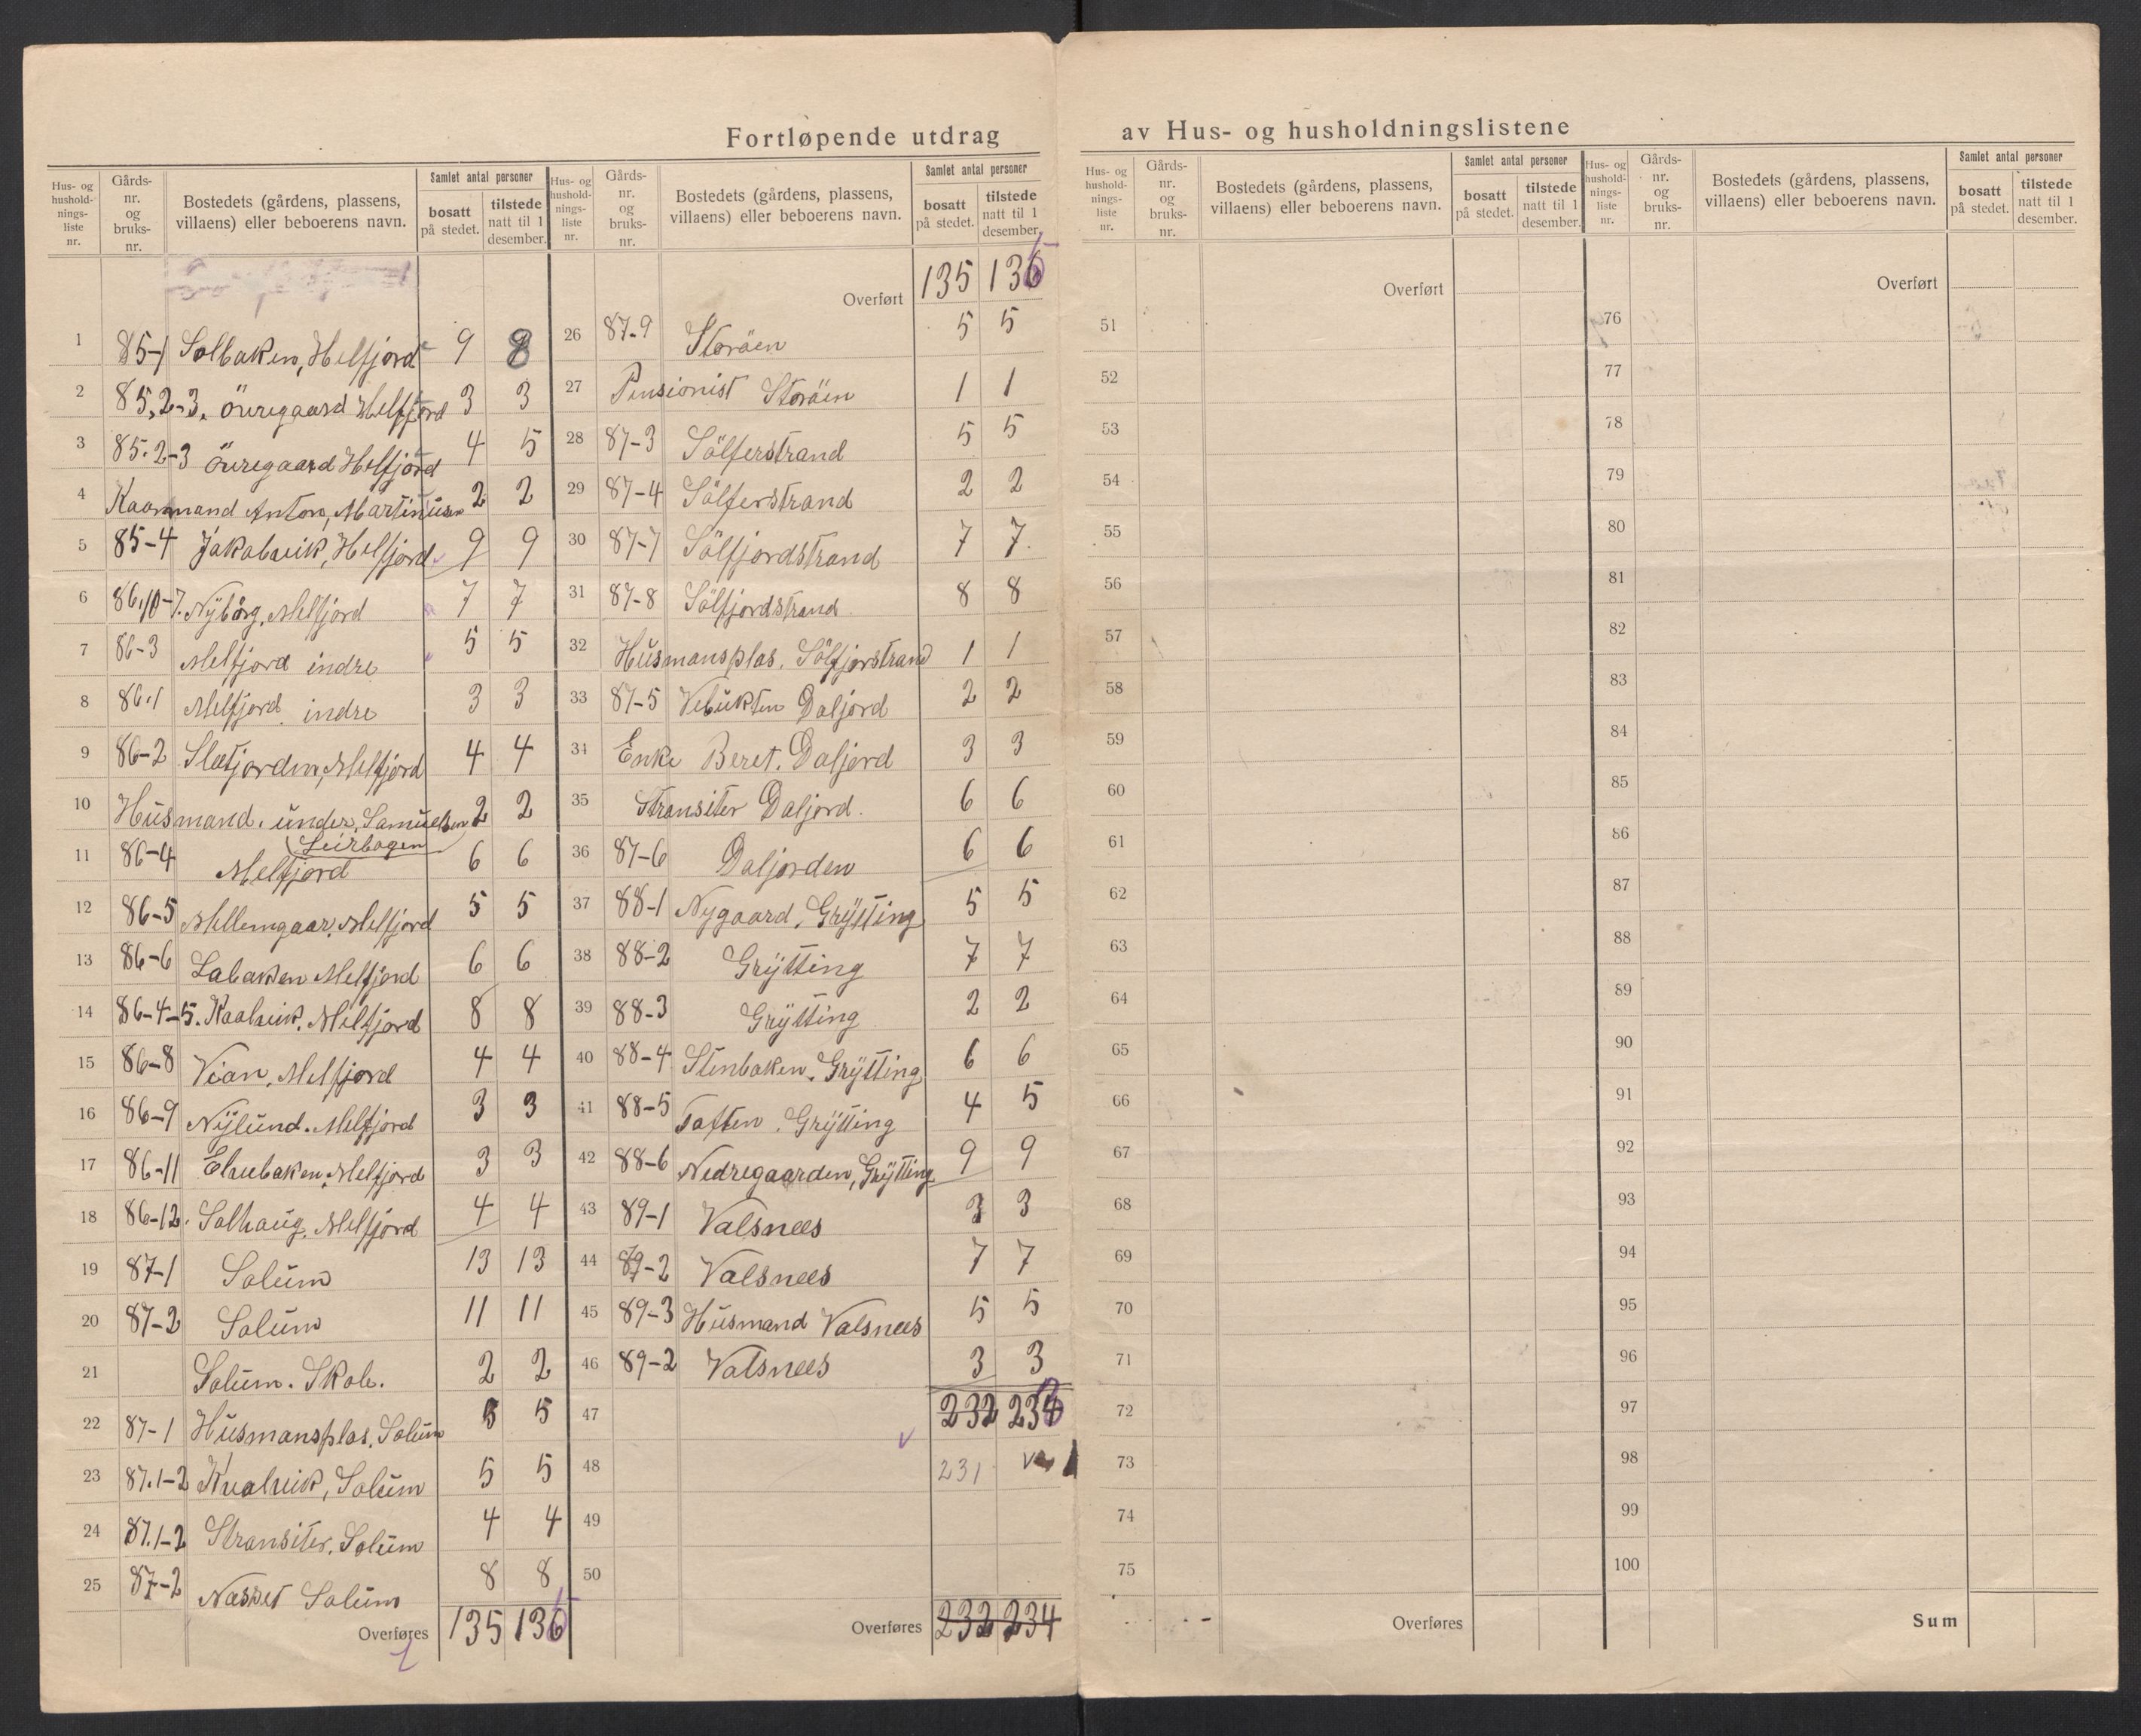 Fortløpende utdrag av Hus- og husholdningslistene
Hus- og husholdningsliste nr. | Gårds-nr. og bruks-nr. | Bostedets (gårdens, plassens, villaens) eller beboerens navn. | Samlet antal personer | bosatt på stedet. | tilstede natt til 1 desember.
1 85-1 Solbaken, Helfjord 9 8
2 85,2-3. Övregaard Helfjord 3 3
3 85.2-3 Övregaard Helfjord 4 5
4 Kaarmand Anton, Martinusen 2 2
5 85-4 Jakobvik, Helfjord 9 9
6 86,10-7. Nyborg, Melfjord 7 7
7 86-3 Melfjord indre 5 5
8 86.1 Melfjord indre 3 3
9 86-2 Sletjorden, Melfjord 4 4
10 Husmand. under. Samuelsen 2 2
11 86-4 Melfjord (Leirbogen) 6 6
12 86-5 Mellemgaar, Melfjord 5 5
13 86-6 Labaken Melfjord 6 6
14 86-4-5. Kaalvik, Melfjord 8 8
15 86-8 Vian, Melfjord 4 4
16 86-9 Nylund. Melfjord 3 3
17 86-11 Elvebaken, Melfjord 3 3
18 86-12. Solhaug, Melfjord 4 4
19 87-1 Solum 13 13
20 87-2 Solum 11 11
21 Solum. Skole. 2 2
22 87-1 Husmansplas, Solum 5 5
23 87.1-2 Kvalvik, Solum 5 5
24 87.1-2 Stransiter, Solum 4 4
25 87-2 Nasset Solum 8 8
Overføres 135 136 5
Hus- og husholdningsliste nr. | Gårds-nr. og bruks-nr. | Bostedets (gårdens, plassens, villaens) eller beboerens navn. | Samlet antal personer | bosatt på stedet. | tilstede natt til 1 desember.
Overført 135 136 5
26 87-9 Storöen 5 5
27 Pensionist Storöen 1 1
28 87-3 Sölferstrand 5 5
29 87-4 Sölferstrand 2 2
30 87-7 Sölfjordstrand 7 7
31 87-8 Sölfjordstrand 8 8
32 Husmansplas, Sölfjorstrand 1 1
33 87-5 Vebukten Daljord 2 2
34 Enke Beret. Daljord 3 3
35 Stransiter Daljord. 6 6
36 87-6 Daljorden 6 6
37 88-1 Nygaard, Grytting 5 5
38 88-2 Grytting 7 7
39 88-3 Grytting 2 2
40 88-4 Stenbaken, Grytting 6 6
41 88-5 Toften, Grytting 4 5
42 88-6 Nedregaarden, Grytting 9 9
43 89-1 Valsnees 3 3
44 89-2 Valsnees 7 7
45 89-3 Husmand Valsnees 5 5
46 89-2 Valsnees 3 3
47 232 234
48 231
49
50
Overføres 232 234
Hus- og husholdningsliste nr. | Gårds-nr. og bruks-nr. | Bostedets (gårdens, plassens, villaens) eller beboerens navn. | Samlet antal personer | bosatt på stedet. | tilstede natt til 1 desember.
Overført
51
52
53
54
55
56
57
58
59
60
61
62
63
64
65
66
67
68
69
70
71
72
73
74
75
Overføres
Hus- og husholdningsliste nr. | Gårds-nr. og bruks-nr. | Bostedets (gårdens, plassens, villaens) eller beboerens navn. | Samlet antal personer | bosatt på stedet. | tilstede natt til 1 desember.
Overført
76
77
78
79
80
81
82
83
84
85
86
87
88
89
90
91
92
93
94
95
96
97
98
99
100
Sum